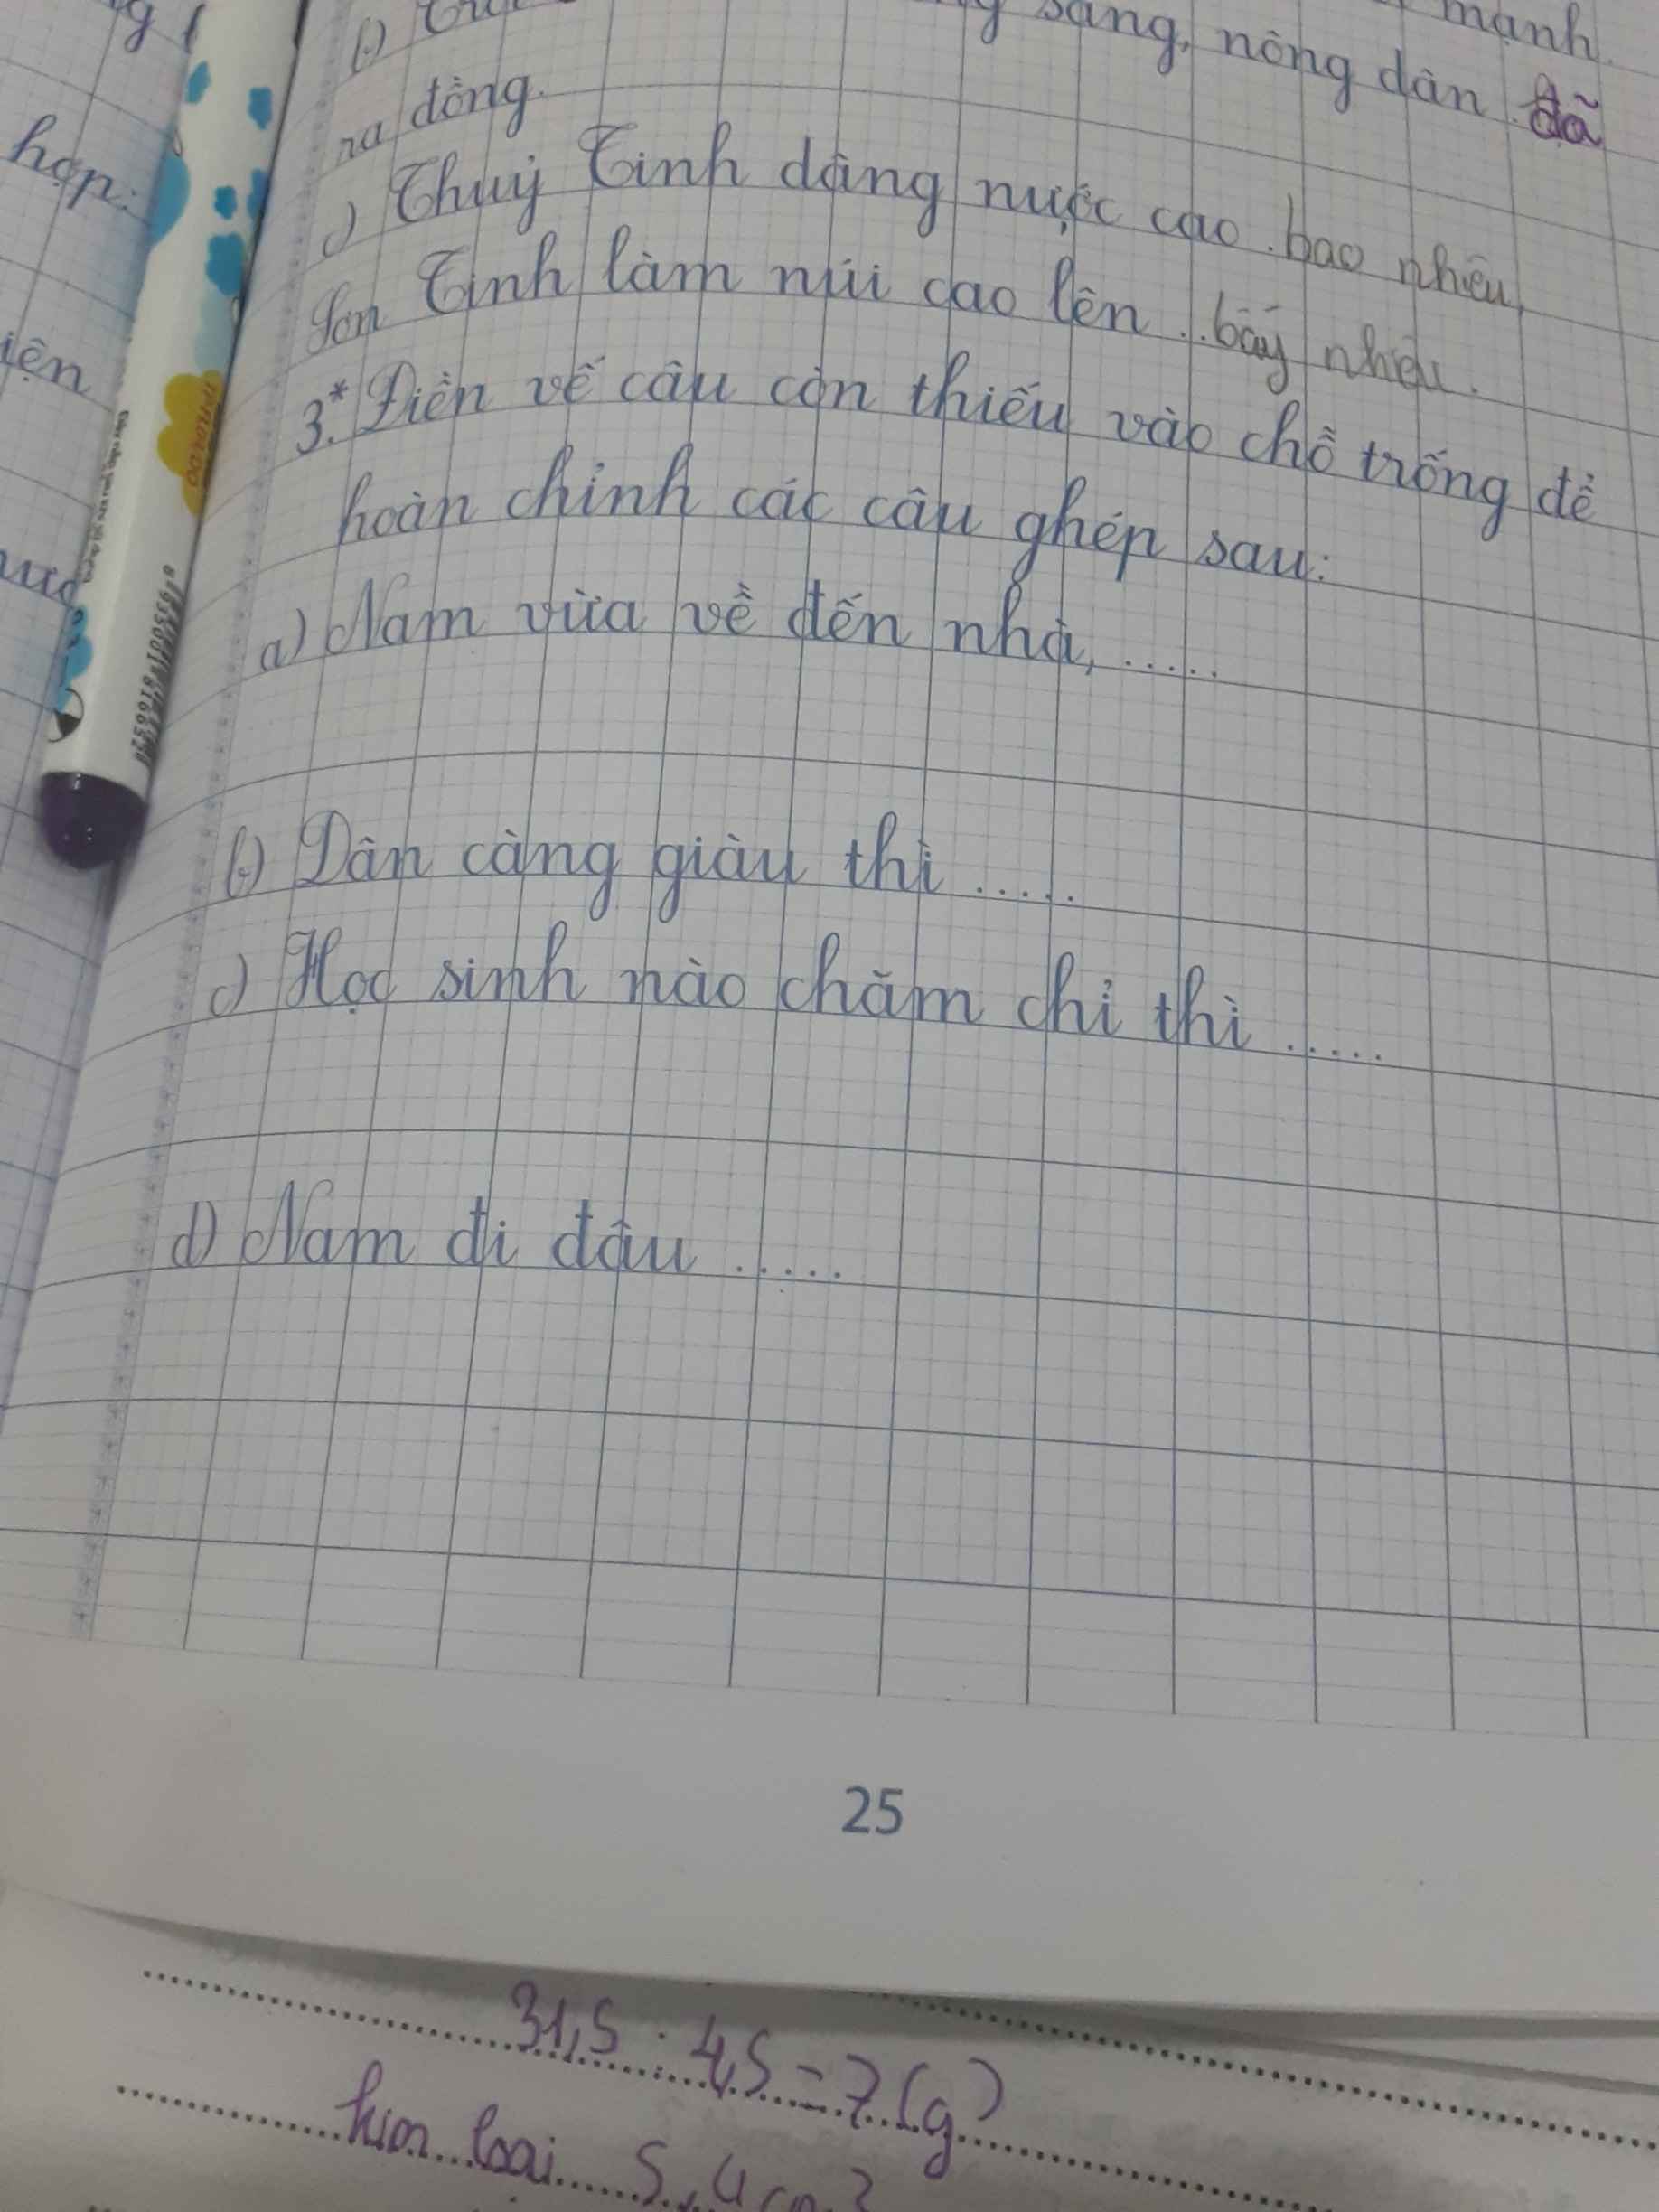 mạnh.
sáng, nông dân đã
ra đồng.
c) Thuỷ Tinh dâng nước cao bao nhiêu,
Sơn Tinh làm núi cao lên ..bấy nhiêu.
3.* Điền vế câu còn thiếu vào chỗ trống để
hoàn chỉnh các câu ghép sau:
a) Nam vừa về đến nhà, .....
b) Dân càng giàu thì .....
c) Học sinh nào chăm chỉ thì .....
d) Nam đi đâu .....
25
hợp:
31,5 : 4,5 = 7 (g)
kim loại